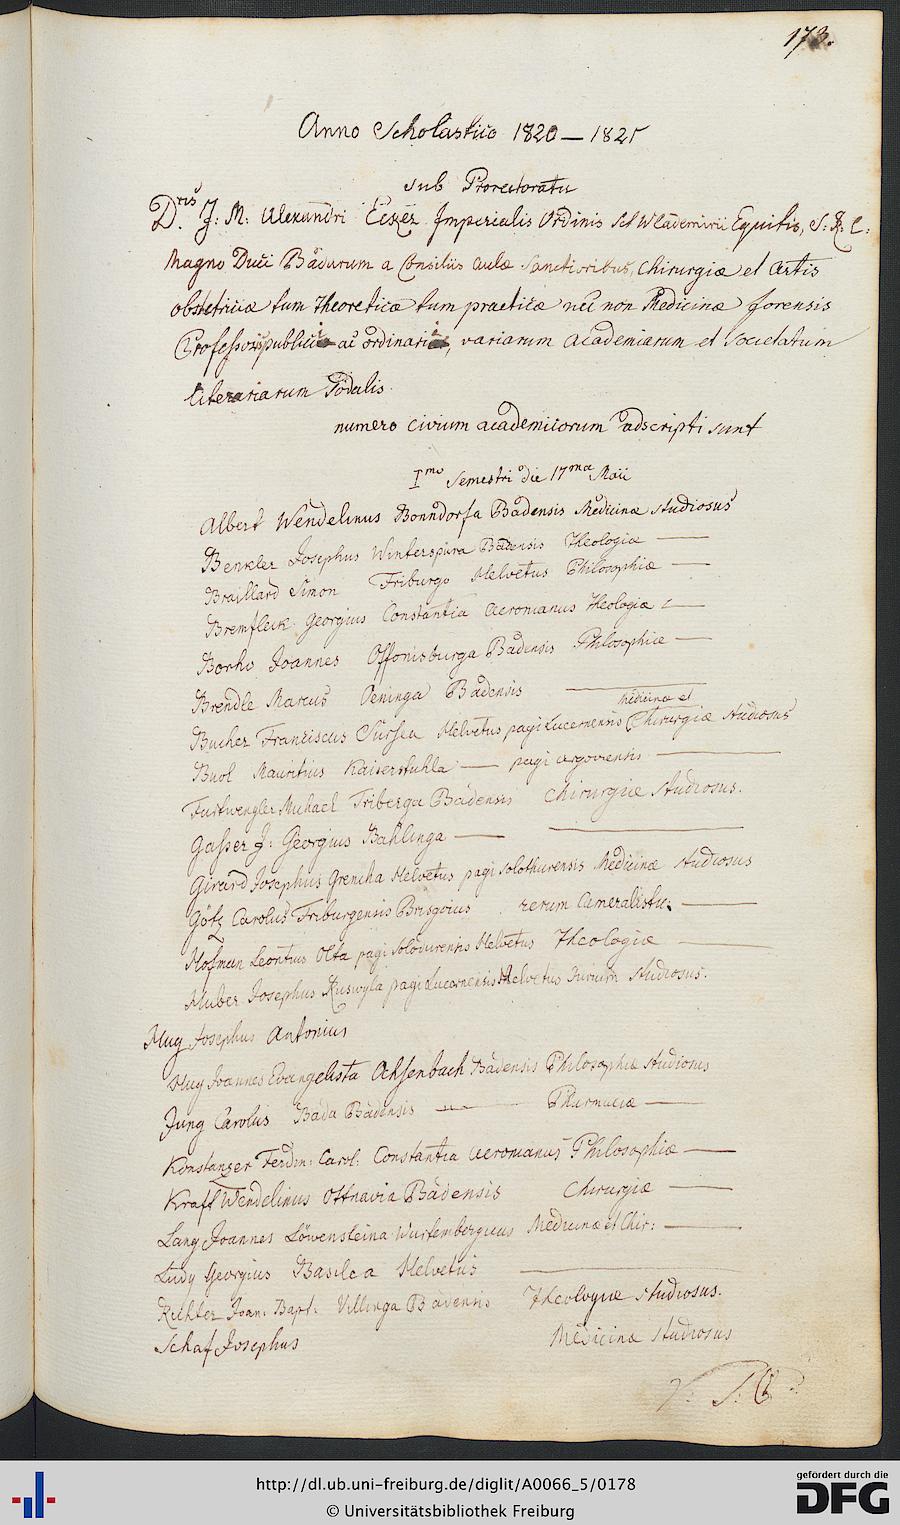 173.
Anno Scholastico 1820 — 1821
sub Prorectoratu
Dris. J: M: Alexandri Ecker Imperialis Ordinis Sct Wladimirii Equitis, S: R: C:
Magno Duci Badarum a Consiliis aulæ Sanctioribus, Chirurgiæ et Artis
obstetriciæ tum theoreticæ tum practicæ nec non Medicinæ forensis
Professoris publici ac ordinarii, variarum academiarum et Societatum
literariarum Sodalis.
numero civium academicorum adscripti sunt
Imo Semestri die 17ma Maii
Albert Wendelinus Bonndorfa Badensis Medicinæ studiosus
Benkler Josephus Winterspüra Badensis Theologiæ —
Braillard Simon Friburgo Helvetus Philosophiæ —
Bremfleck Georgius Constantia Acronianus Theologiæ —
Borho Joannes Offonisburga Badensis Philosophiæ —
Brendle Marcus Oeninga Badensis —
Bucher Franciscus Sursea Helvetus pagi Lucernensis medicinæ et Chirurgiæ studiosus
Buol Mauritius Kaiserstuhla — pagi argoviensis —
Furtwengler Michael Triberga Badensis Chirurgiæ studiosus.
Gasser J: Georgius Bahlinga — —
Girard Josephus Grencha Helvetus pagi Solothurensis Medicinæ studiosus
Götz Carolus Friburgensis Brisgoius rerum Cameralistic. —
Hofman Leontius Olta pagi Solodurensis Helvetus Theologiæ —
Huber Josephus Ruswyla pagi Lucernensis Helvetus Jurium studiosus.
Hug Josephus Antonius
Hug Joannes Evangelista Achsenbach Badensis Philosophiæ studiosus
Jung Carolus Bada Badensis — Pharmaciæ —
Konstanzer Ferdin: Carol: Constantia Acronianus Philosophiæ —
Kraft Wendelinus Ottnavia Badensis Chirurgiæ —
Lang Joannes Löwensteina Würtembergicus Medicinæ et Chir: —
Ludy Georgius Basilea Helvetus —
Richter Joan: Bapt: Villinga Badensis Theologiæ studiosus.
Schaf Josephus Medicinæ studiosus
http://dl.ub.uni-freiburg.de/diglit/A0066_5/0178
© Universitätsbibliothek Freiburg
gefördert durch die
DFG